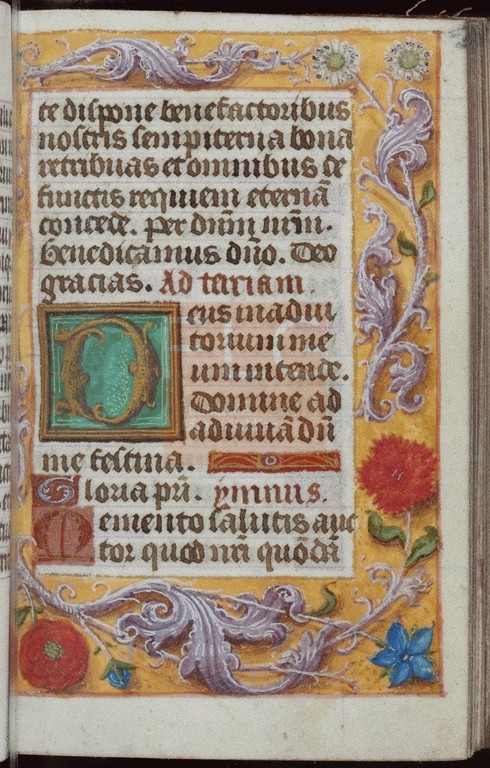 te dispone benefactoribus
nostris sempiterna bona
retribuas et omnibus de
functis requiem eternā
concede. per dñm nrm̃.
Benedicamus dño. Deo
gracias. Ad terciam.
Deus in adiu
torium me
um intende.
Domine ad
adiuuādū
me festina.
Gloria pr̃i. ymnus.
Memento salutis auc
tor quod nr̃i quōdā